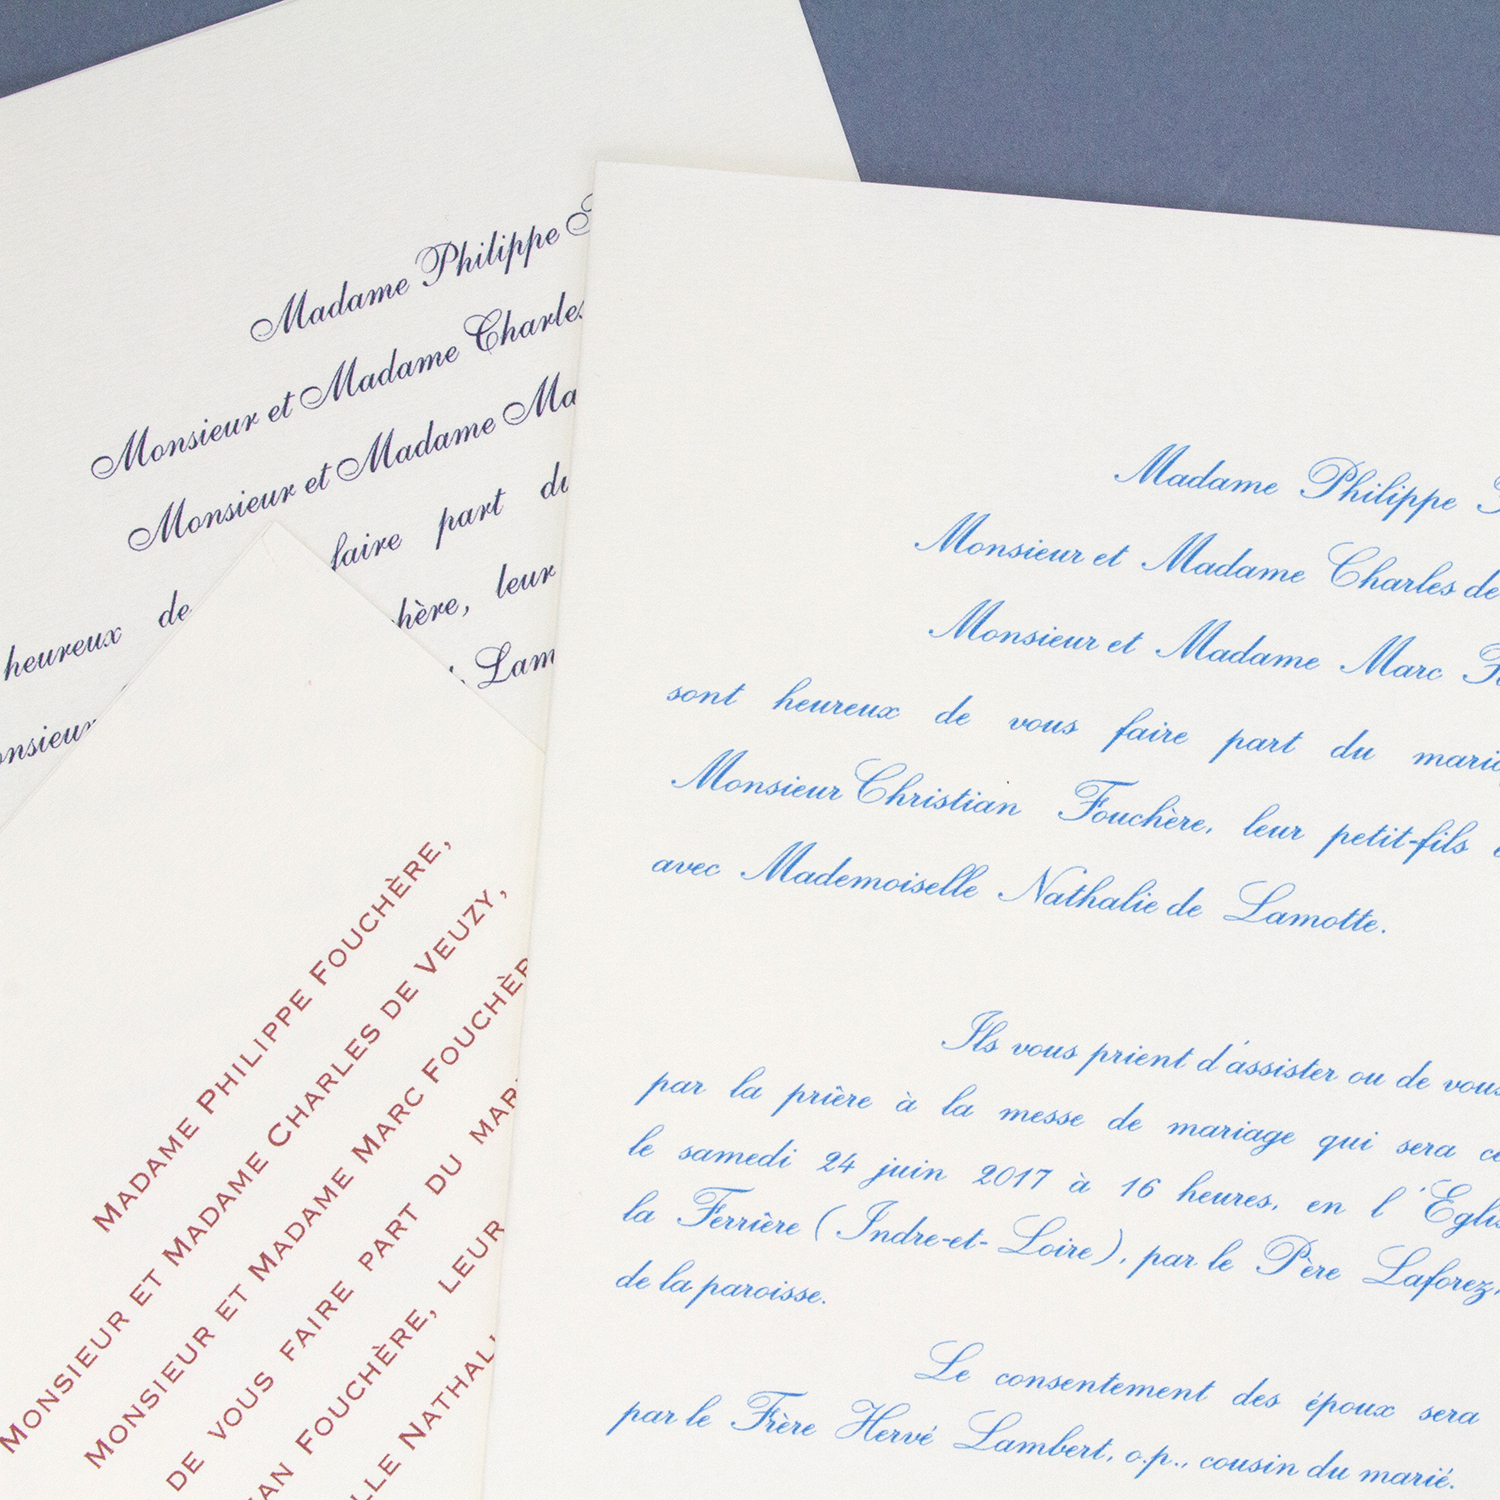 Madame Philippe
Monsieur et Madame Charles
Monsieur et Madame
faire part du
heureux de
leur
MADAME PHILIPPE FOUCHÈRE,
MONSIEUR ET MADAME CHARLES DE VEUZY,
MONSIEUR ET MADAME MARC FOUCHÈR
DE VOUS FAIRE PART DU MAR
FOUCHÈRE, LEUR
Madame Philippe
Monsieur et Madame Charles de
Monsieur et Madame Marc
sont heureux de vous faire part du
Monsieur Christian Fouchère, leur petit-fils
avec Mademoiselle Nathalie de Lamotte.
Ils vous prient d'assister ou de vous
par la prière à la messe de mariage qui sera
le samedi 24 juin 2017 à 16 heures, en l'Eglis
la Ferrière (Indre-et-Loire), par le Père Laforez,
de la paroisse.
Le consentement des époux sera
par le Frère Hervé Lambert, o.p., cousin du marié.